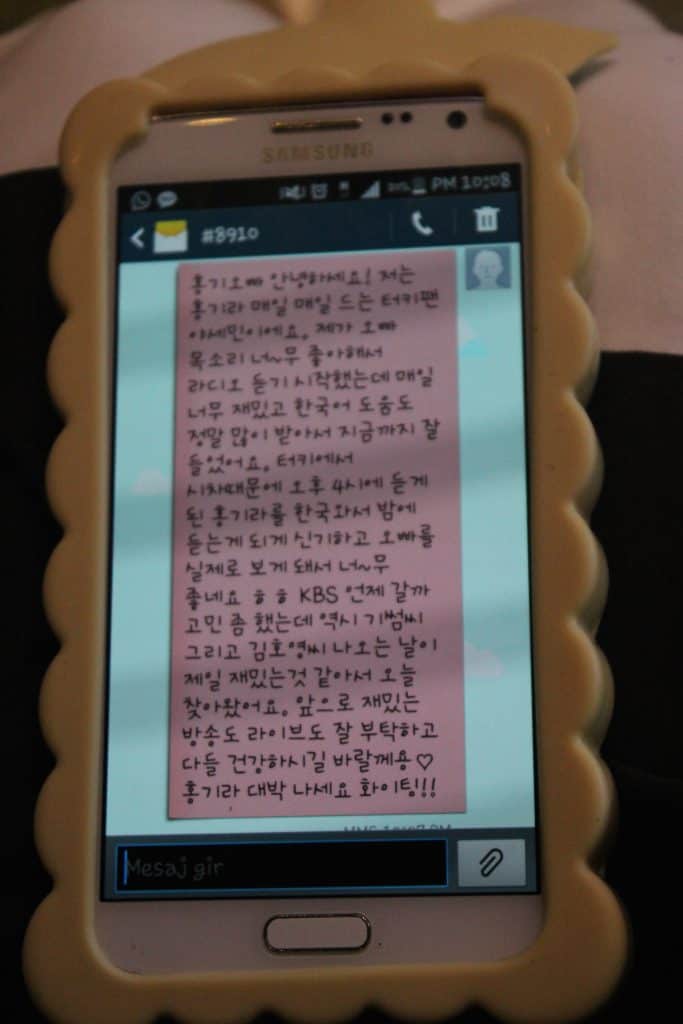 SAMSUNG
PM 10:08
#8910
홍기오빠 안녕하세요! 저는
홍기라 매일 매일 드는 터키팬
야세민이에요. 제가 오빠
목소리 너~무 좋아해서
라디오 듣기 시작했는데 매일
너무 재밌고 한국어 도움도
정말 많이 받아서 지금까지 잘
들었어요. 터키에서
시차때문에 오후 4시에 듣게
된 홍기라를 한국와서 밤에
듣는게 되게 신기하고 오빠를
실제로 보게 돼서 너~무
좋네요 ㅎㅎ KBS 언제 갈까
고민 좀 했는데 역시 기썸씨
그리고 김호영씨 나오는 날이
제일 재밌는것 같아서 오늘
찾아왔어요. 앞으로 재밌는
방송도 라이브도 잘 부탁하고
다들 건강하시길 바랄께용♡
홍기라 대박 나세요 화이팅!!
Mesaj gir